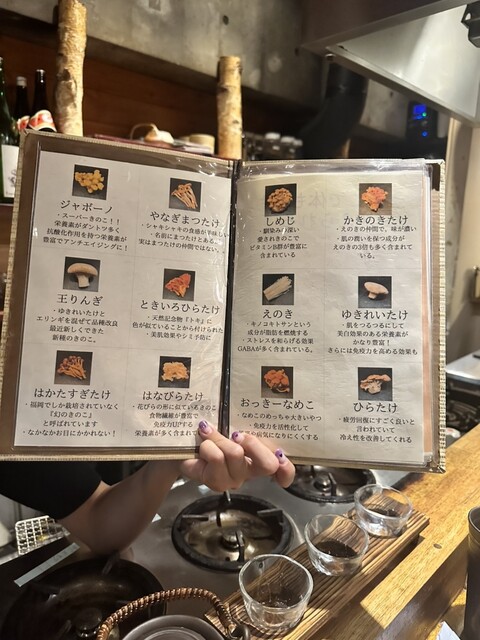 ジャボーノ
・スーパーきのこ！！
栄養素がダントツ多く
抗酸化作用を持つ栄養素が
豊富でアンチエイジングに！
やなぎまつたけ
・シャキシャキの食感が美味しい
・名前にまつたけとある。
実はまつたけの仲間ではない。
王りんぎ
・ゆきれいたけと
エリンギを混ぜて品種改良
最近新しくできた
新種のきのこ。
ときいろひらたけ
・天然記念物『トキ』に
色が似ていることから付けられた
・美肌効果やシミ予防に
はかたすぎたけ
・福岡でしか栽培されていなく
『幻のきのこ』
と呼ばれています
・なかなかお目にかかれない！
はなびらたけ
・花びらの形に似ているきのこ
食物繊維が豊富で
免疫力UP
栄養素が多く含まれ
しめじ
・馴染み深い
愛されきのこで
ビタミンB群が豊富に
含まれている
かきのきたけ
・えのきの仲間で、味が濃い
・肌の潤いを保つ成分が
えのきの3倍も多く含まれて
いる。
えのき
・キノコキトサンという
成分が脂肪を燃焼する
・ストレスを和らげる効果
GABAが多く含まれている。
ゆきれいたけ
・肌をつるつるにして
美白効果のある栄養素が
かなり豊富！
さらには免疫力を高める効果も
おっきーなめこ
・なめこのめっちゃ大きいやつ
・免疫力を活性化して
病気になりにくくする
ひらたけ
・疲労回復にすごく良いと
言われていて
冷え性を改善してくれる